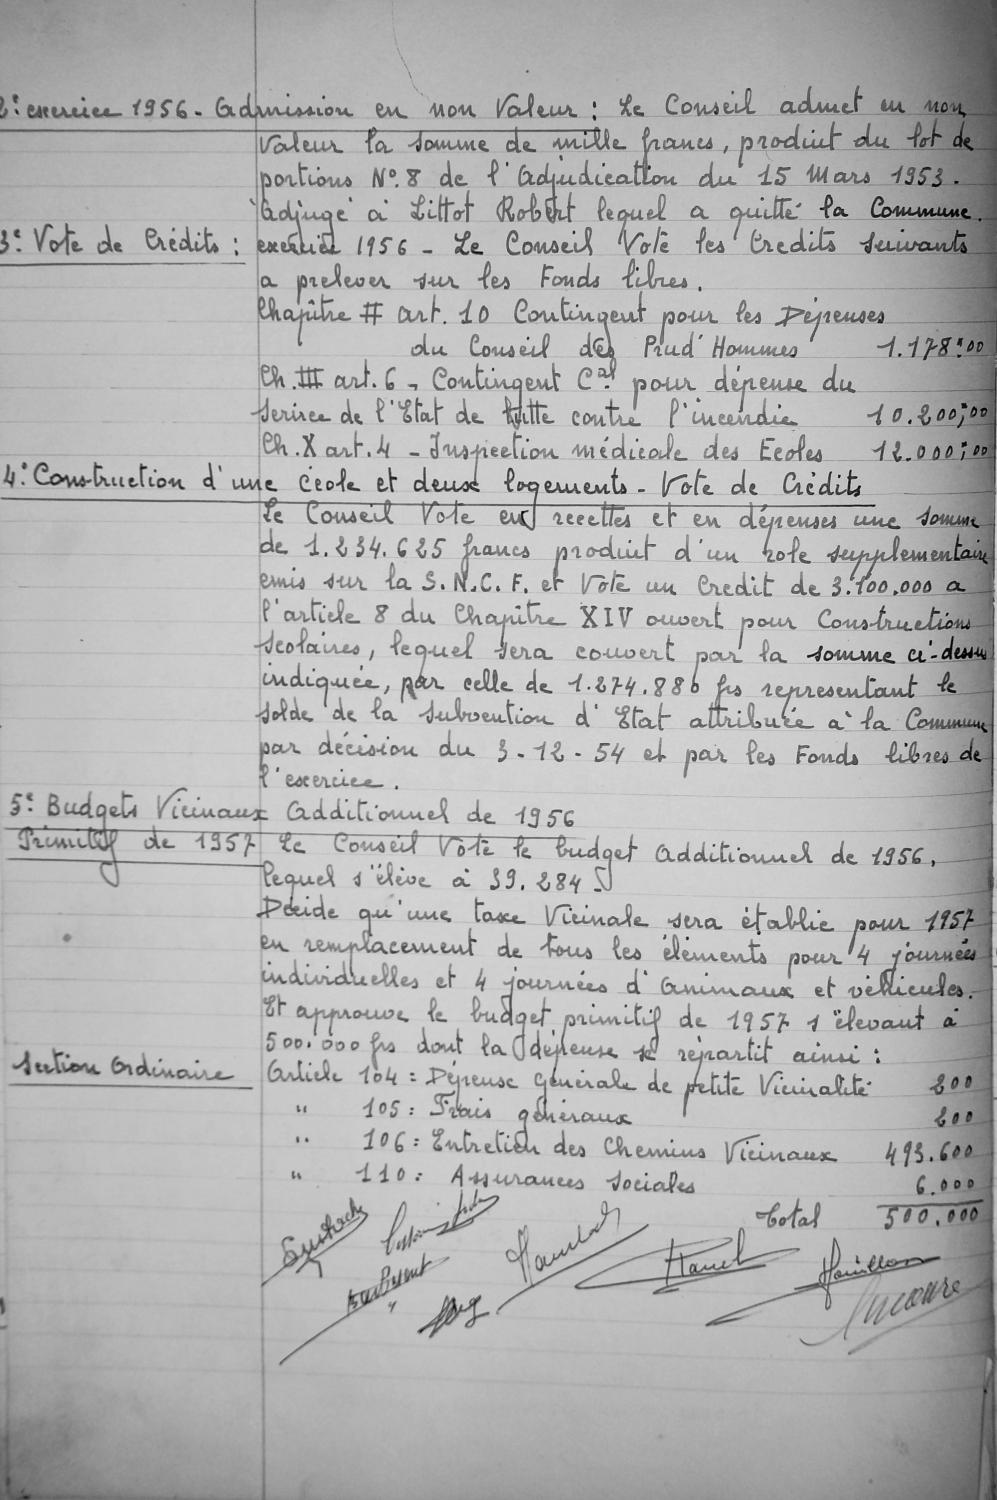 2° exercice 1956 - Admission en non Valeur : Le Conseil admet en non
Valeur la somme de mille francs, produit du lot de
portions N° 8 de l'Adjudication du 15 Mars 1953.
Adjugé à Littot Robert lequel a quitté la Commune.
3° Vote de Crédits : exercice 1956 - Le Conseil Vote les Credits suivants
a prelever sur les Fonds libres.
Chapître II art. 10 Contingent pour les Dépenses
du Conseil des Prud'Hommes 1.178,00
Ch. III art. 6 - Contingent Cal pour dépense du
Serivce de l'Etat de lutte contre l'incendie 10.200,00
Ch. X art. 4 - Inspection médicale des Ecoles 12.000,00
4° Construction d'une école et deux logements - Vote de Crédits
Le Conseil Vote en recettes et en dépenses une somme
de 1.234.625 francs produit d'un role supplementaire
emis sur la S.N.C.F. et Vote un Credit de 3.100.000 a
l'article 8 du Chapître XIV ouvert pour Constructions
Scolaires, lequel sera couvert par la somme ci-dessus
indiquée, par celle de 1.274.880 frs representant le
solde de la subvention d'Etat attribuée à la Commune
par décision du 3-12-54 et par les Fonds libres de
l'exercice.
5° Budgets Vicinaux Additionnel de 1956
Primitif de 1957 Le Conseil Vote le budget Additionnel de 1956,
lequel s'élève à 39.284.
Decide qu'une taxe Vicinale sera établie pour 1957
en remplacement de tous les éléments pour 4 journées
individuelles et 4 journées d'Animaux et véhicules.
Et approuve le budget primitif de 1957 s'élevant à
500.000 frs dont la dépense se répartit ainsi :
Section Ordinaire Article 104 : Dépense générale de petite Vicinalité 200
" 105 : Frais généraux 200
" 106 : Entretien des Chemins Vicinaux 493.600
" 110 : Assurances Sociales 6.000
Total 500.000